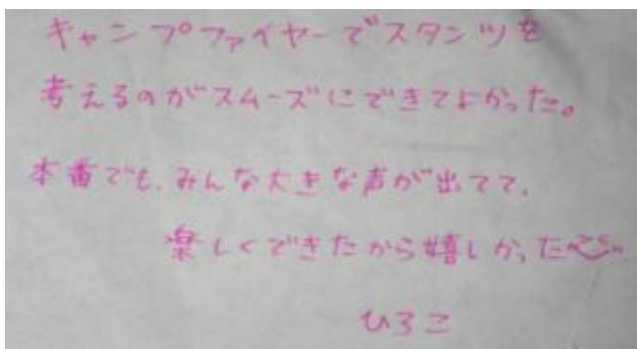 キャンプファイヤーでスタンツを
考えるのがスムーズにできてよかった。
本番でも、みんな大きな声が出てて、
楽しくできたから嬉しかった
ひろこ